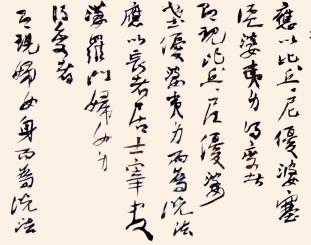 應以比丘尼優婆塞
優婆夷身得度者
即現比丘尼優婆
塞優婆夷身而為說法
應以長者居士宰官
婆羅門婦女身
得度者
即現婦女身而為說法